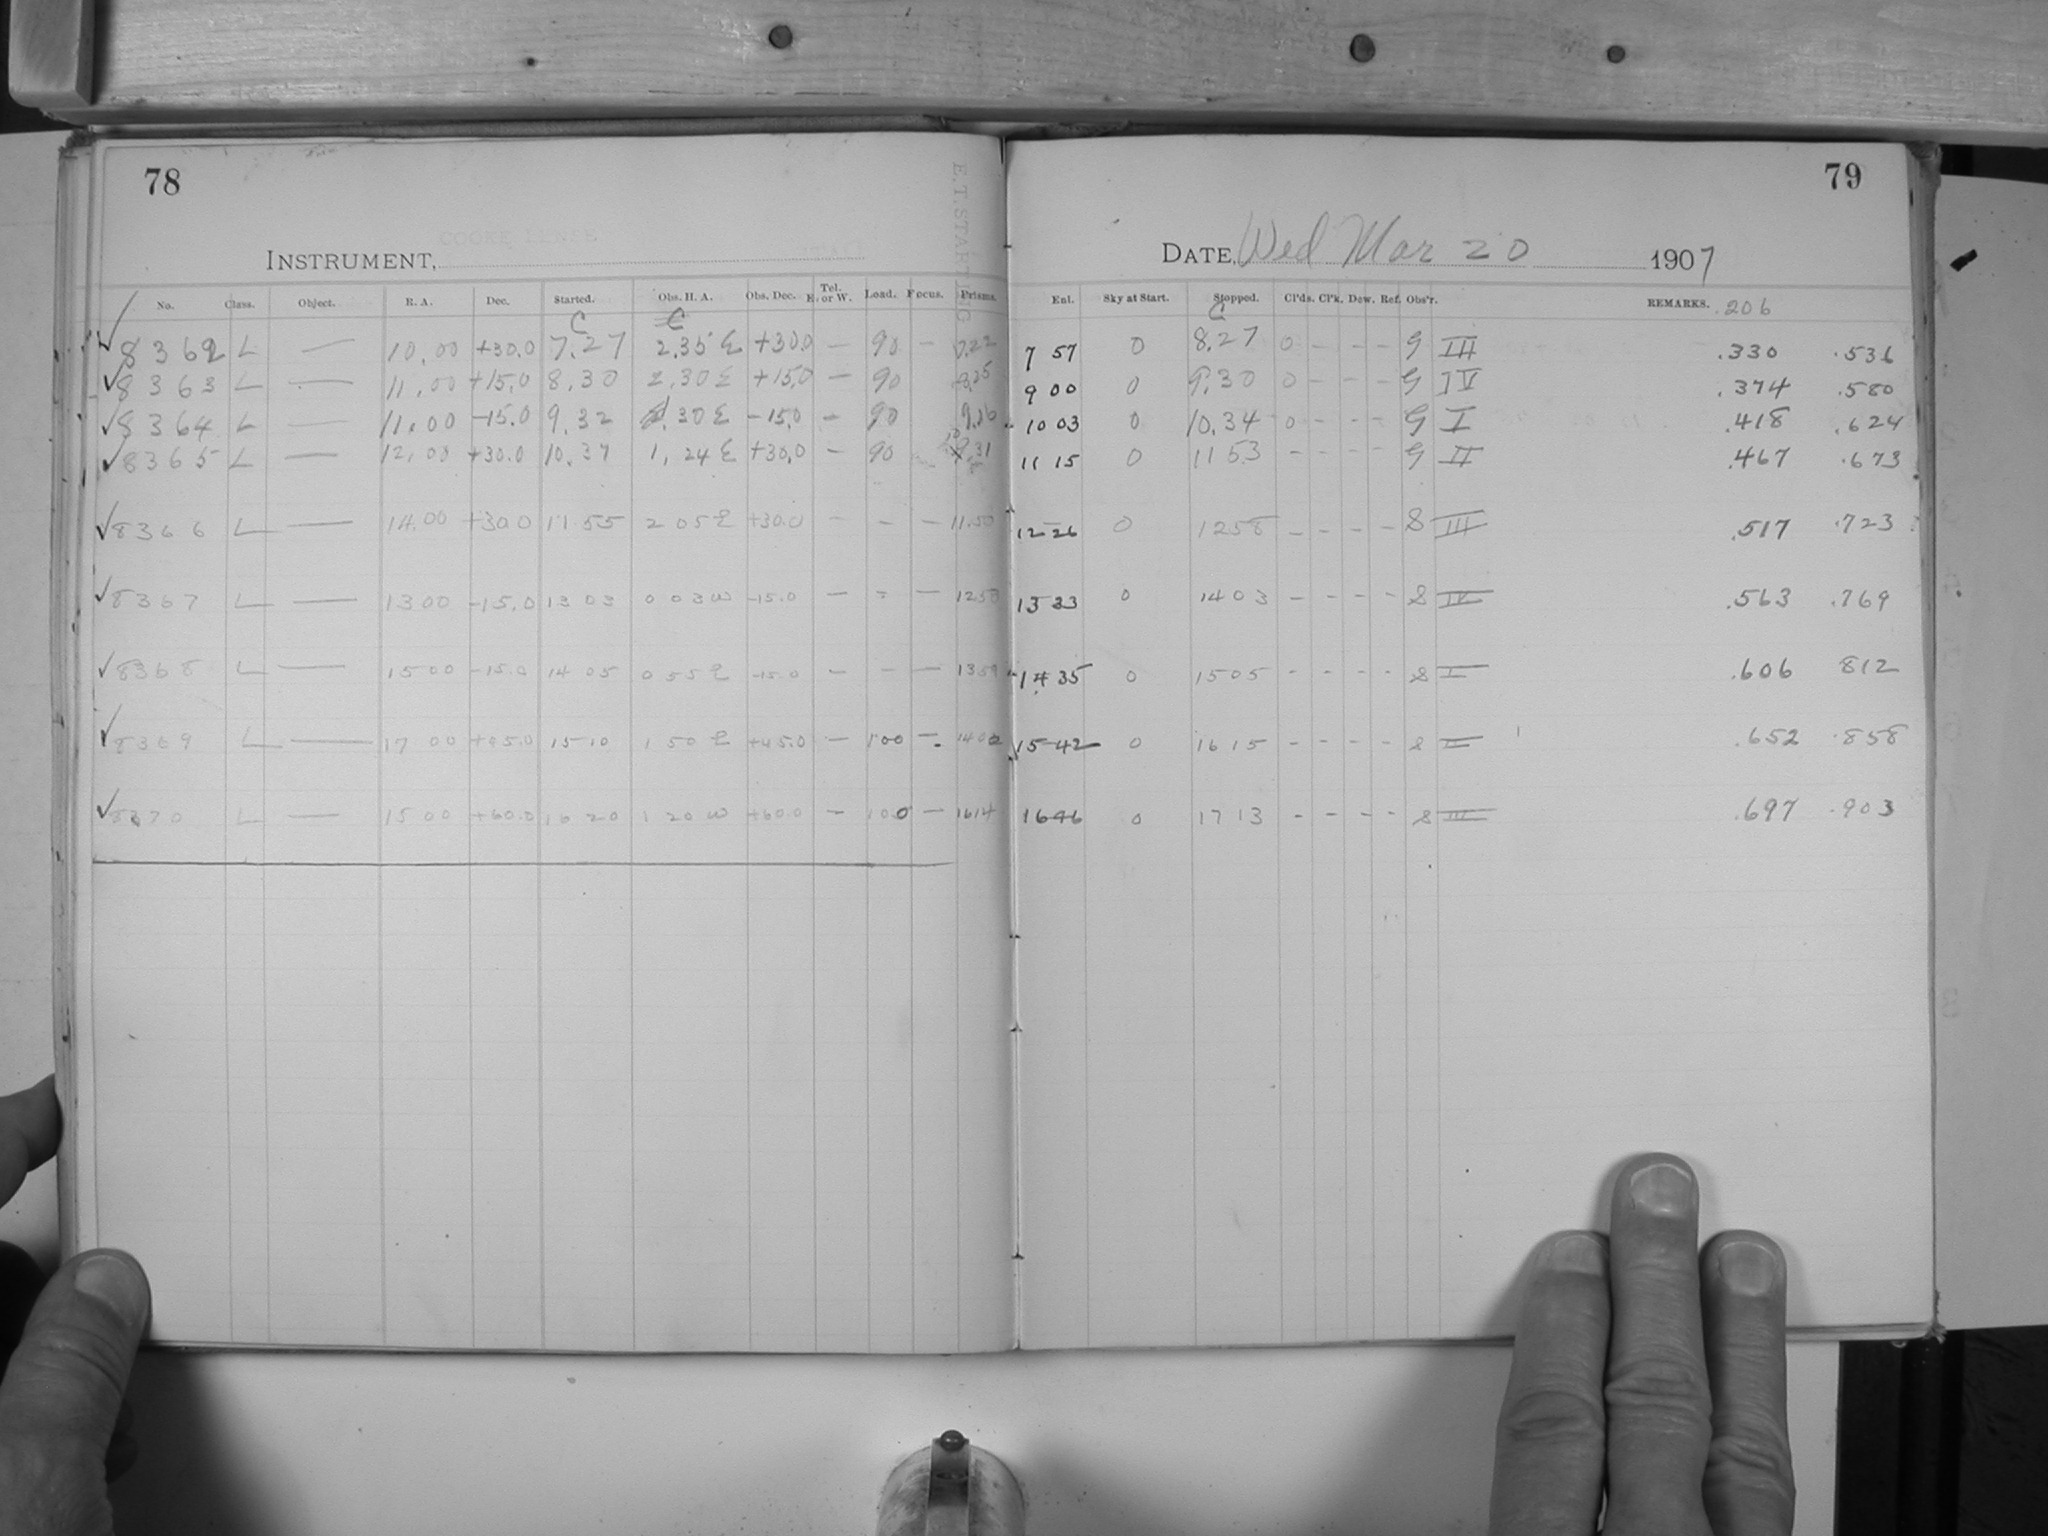 78
79
COOKE LENSE
E.T. STARTING
INSTRUMENT,
DATE, Wed Mar 20 1907
No. Class. Object. R. A. Dec. Started. Obs. H. A. Obs. Dec. Tel. E. or W. Load. Focus. Prisms. Enl. Sky at Start. Stopped. Cl'ds. Cl'k. Dew. Ref. Obs'r. REMARKS. .206
C C C
✓ 8362 L — 10.00 +30.0 7.27 2.35 E +30.0 — 90 — 7.22 7 57 0 8.27 0 - - - G III .330 .536
✓ 8363 L — 11.00 +15.0 8.30 2.30 E +15.0 — 90 8.25 9 00 0 9.30 0 - - - G IV .374 .580
✓ 8364 L — 11.00 -15.0 9.32 .30 E -15.0 - 90 9.26 10 03 0 10.34 0 - - - G I .418 .624
✓ 8365 L — 12.00 +30.0 10.37 1.24 E +30.0 - 90 .31 11 15 0 11 53 - - - - G II .467 .673
✓ 8366 L — 14.00 +30.0 11.55 2 05 E +30.0 - - — 11.50 12 26 0 1258 - - - - S III .517 .723
✓ 8367 L — 13 00 -15.0 13 03 0 03 W -15.0 - - — 1258 13 33 0 1403 - - - - S IV .563 .769
✓ 8368 L — 15 00 -15.0 14 05 0 55 E -15.0 - - — 1359 14 35 0 1505 - - - - S I .606 812
✓ 8369 L — 17 00 +45.0 15 10 1 50 E +45.0 — 100 — 15 42 0 16 15 - - - - S II .652 .858
✓ 8370 L — 15 00 +60.0 16 20 1 20 W +60.0 — 100 — 1614 1646 0 17 13 - - - - S III .697 .903